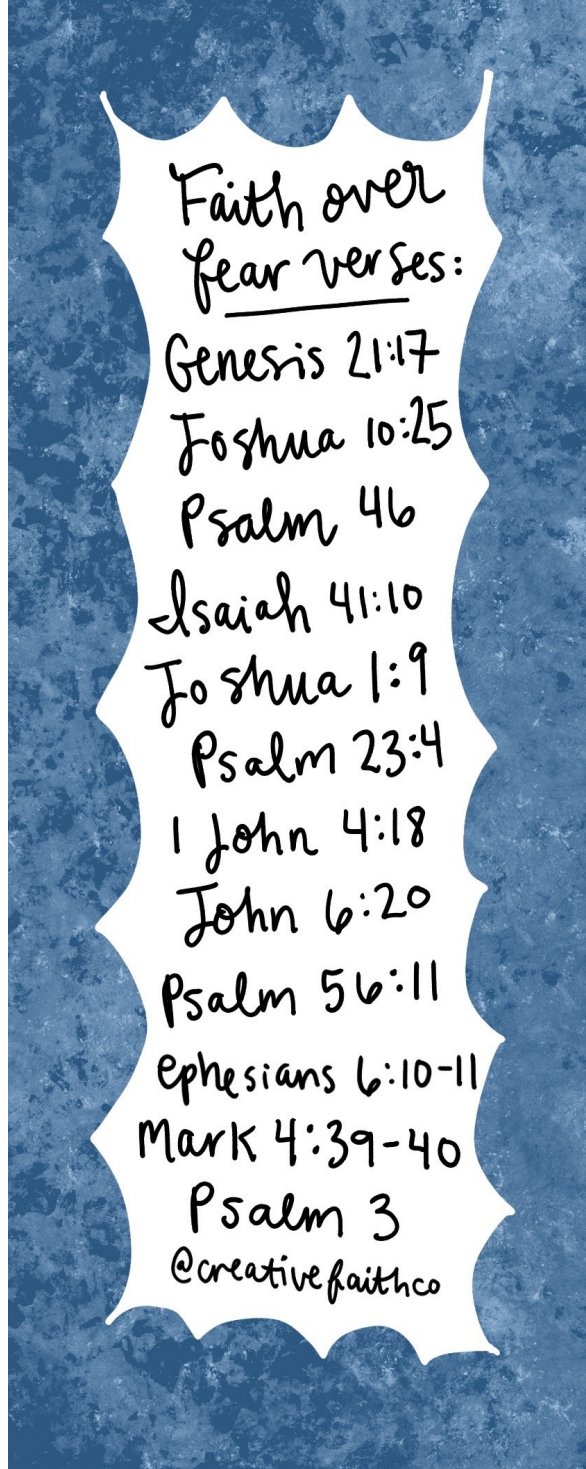 Faith over
fear verses:
Genesis 21:17
Joshua 10:25
Psalm 46
Isaiah 41:10
Joshua 1:9
Psalm 23:4
1 John 4:18
John 6:20
Psalm 56:11
ephesians 6:10-11
Mark 4:39-40
Psalm 3
@creativefaithco